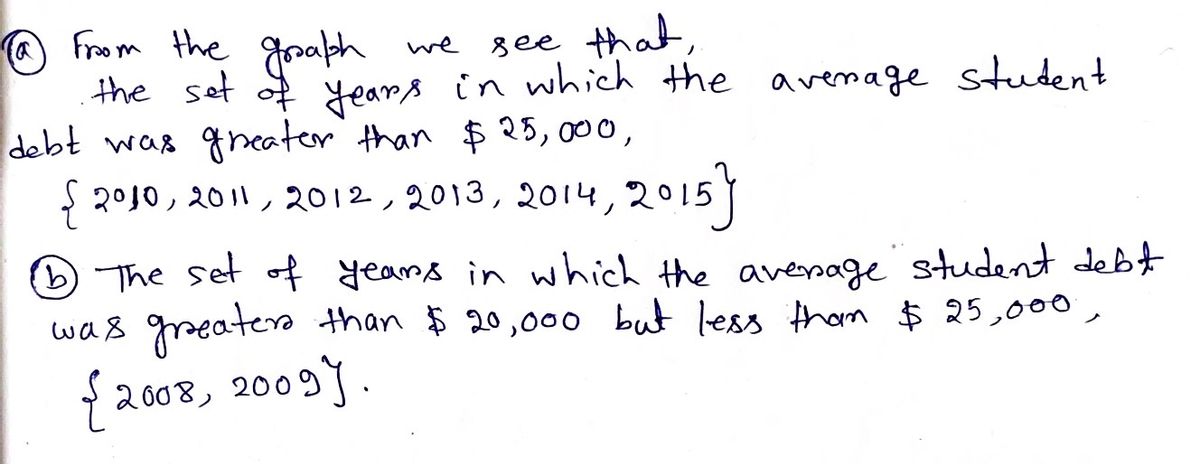 (a) From the graph we see that,
the set of years in which the average student
debt was greater than $ 25,000,
{ 2010, 2011, 2012, 2013, 2014, 2015}
(b) The set of years in which the average student debt
was greater than $ 20,000 but less than $ 25,000,
{ 2008, 2009}.